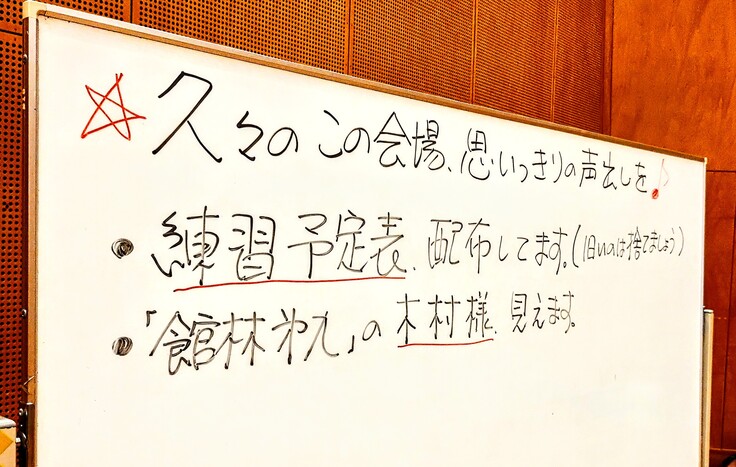 ☆久々のこの会場、思いっきりの声出しを♪
・練習予定表、配布してます。(旧いのは捨てましょう)
・「館林 」の木村様、見えます。